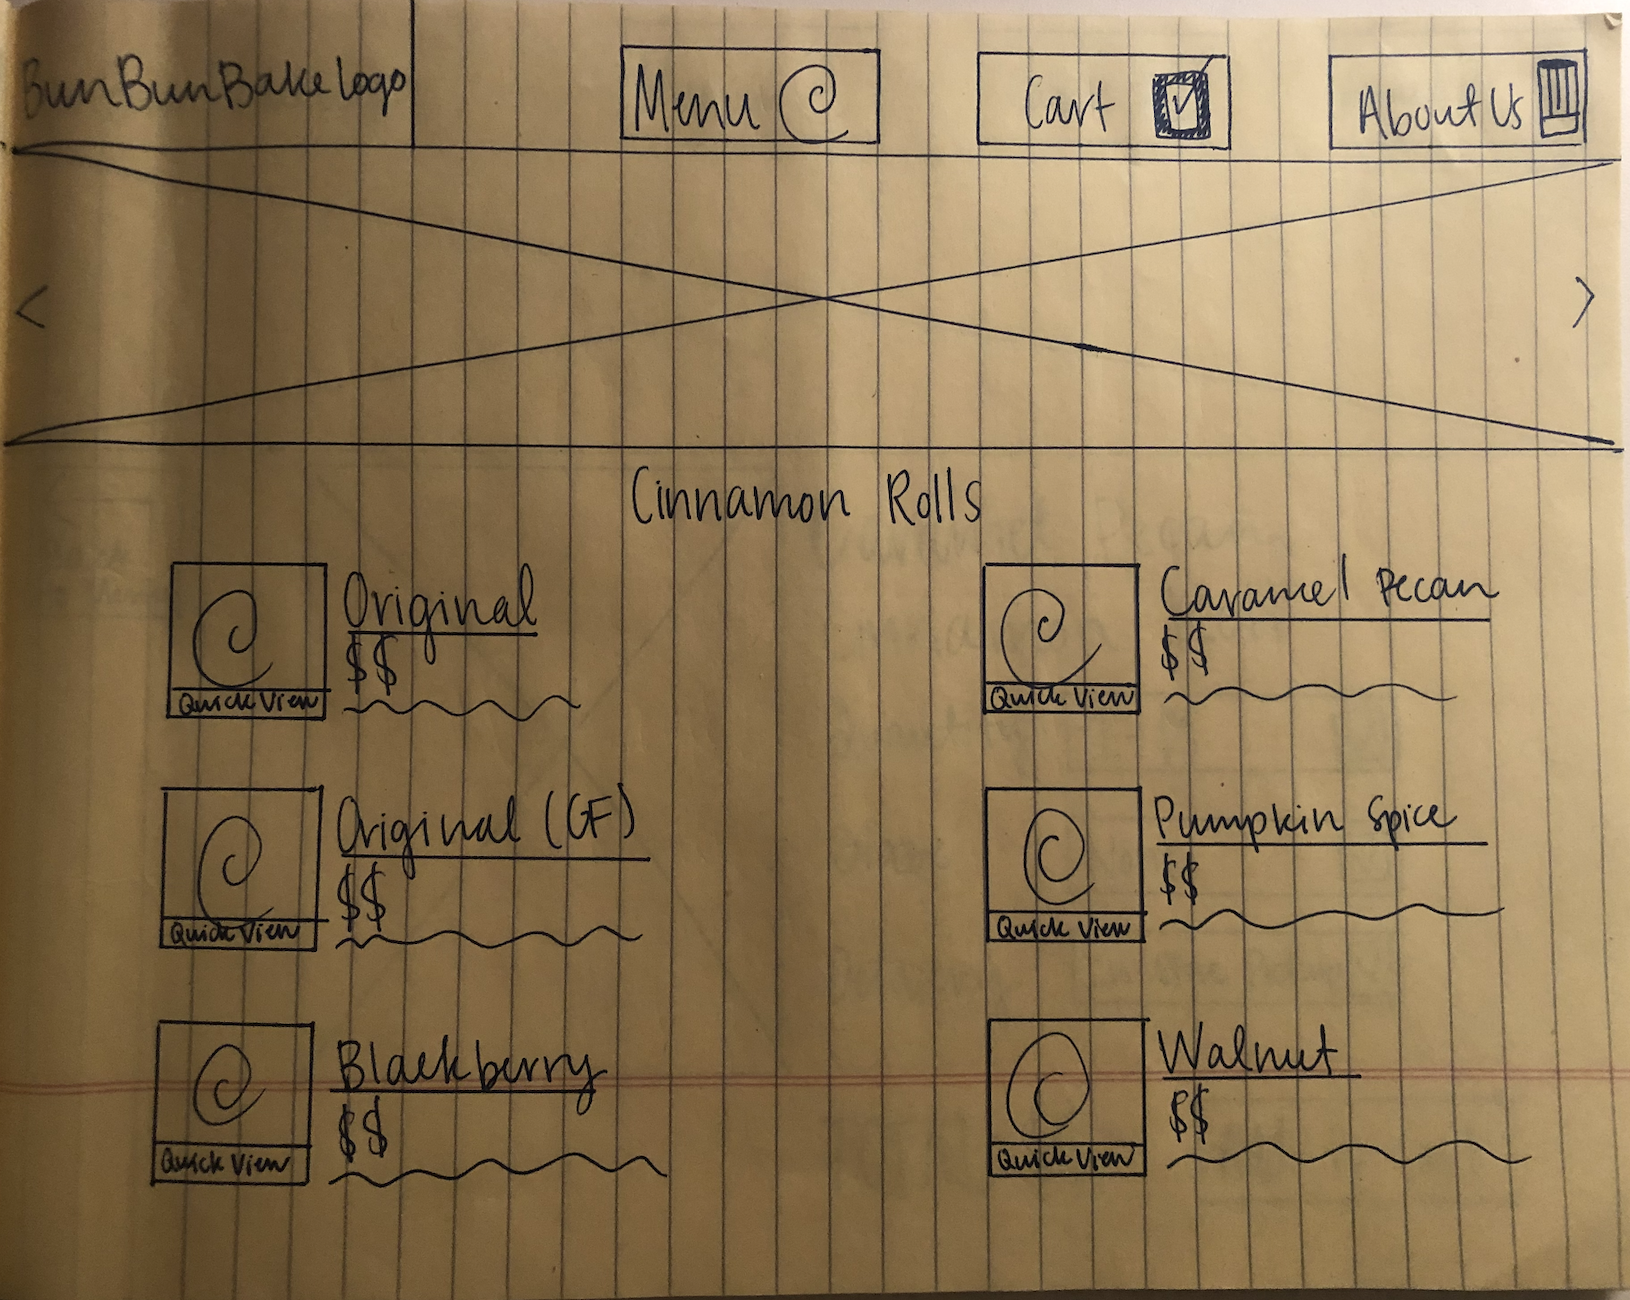 BunBunBake logo
Menu
Cart
About Us
<
>
Cinnamon Rolls
Original
$$
Quick View
Caramel Pecan
$$
Quick View
Original (GF)
$$
Quick View
Pumpkin Spice
$$
Quick View
Blackberry
$$
Quick View
Walnut
$$
Quick View